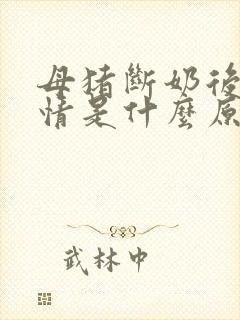 母猪斷奶後
情是什麼原
武林中